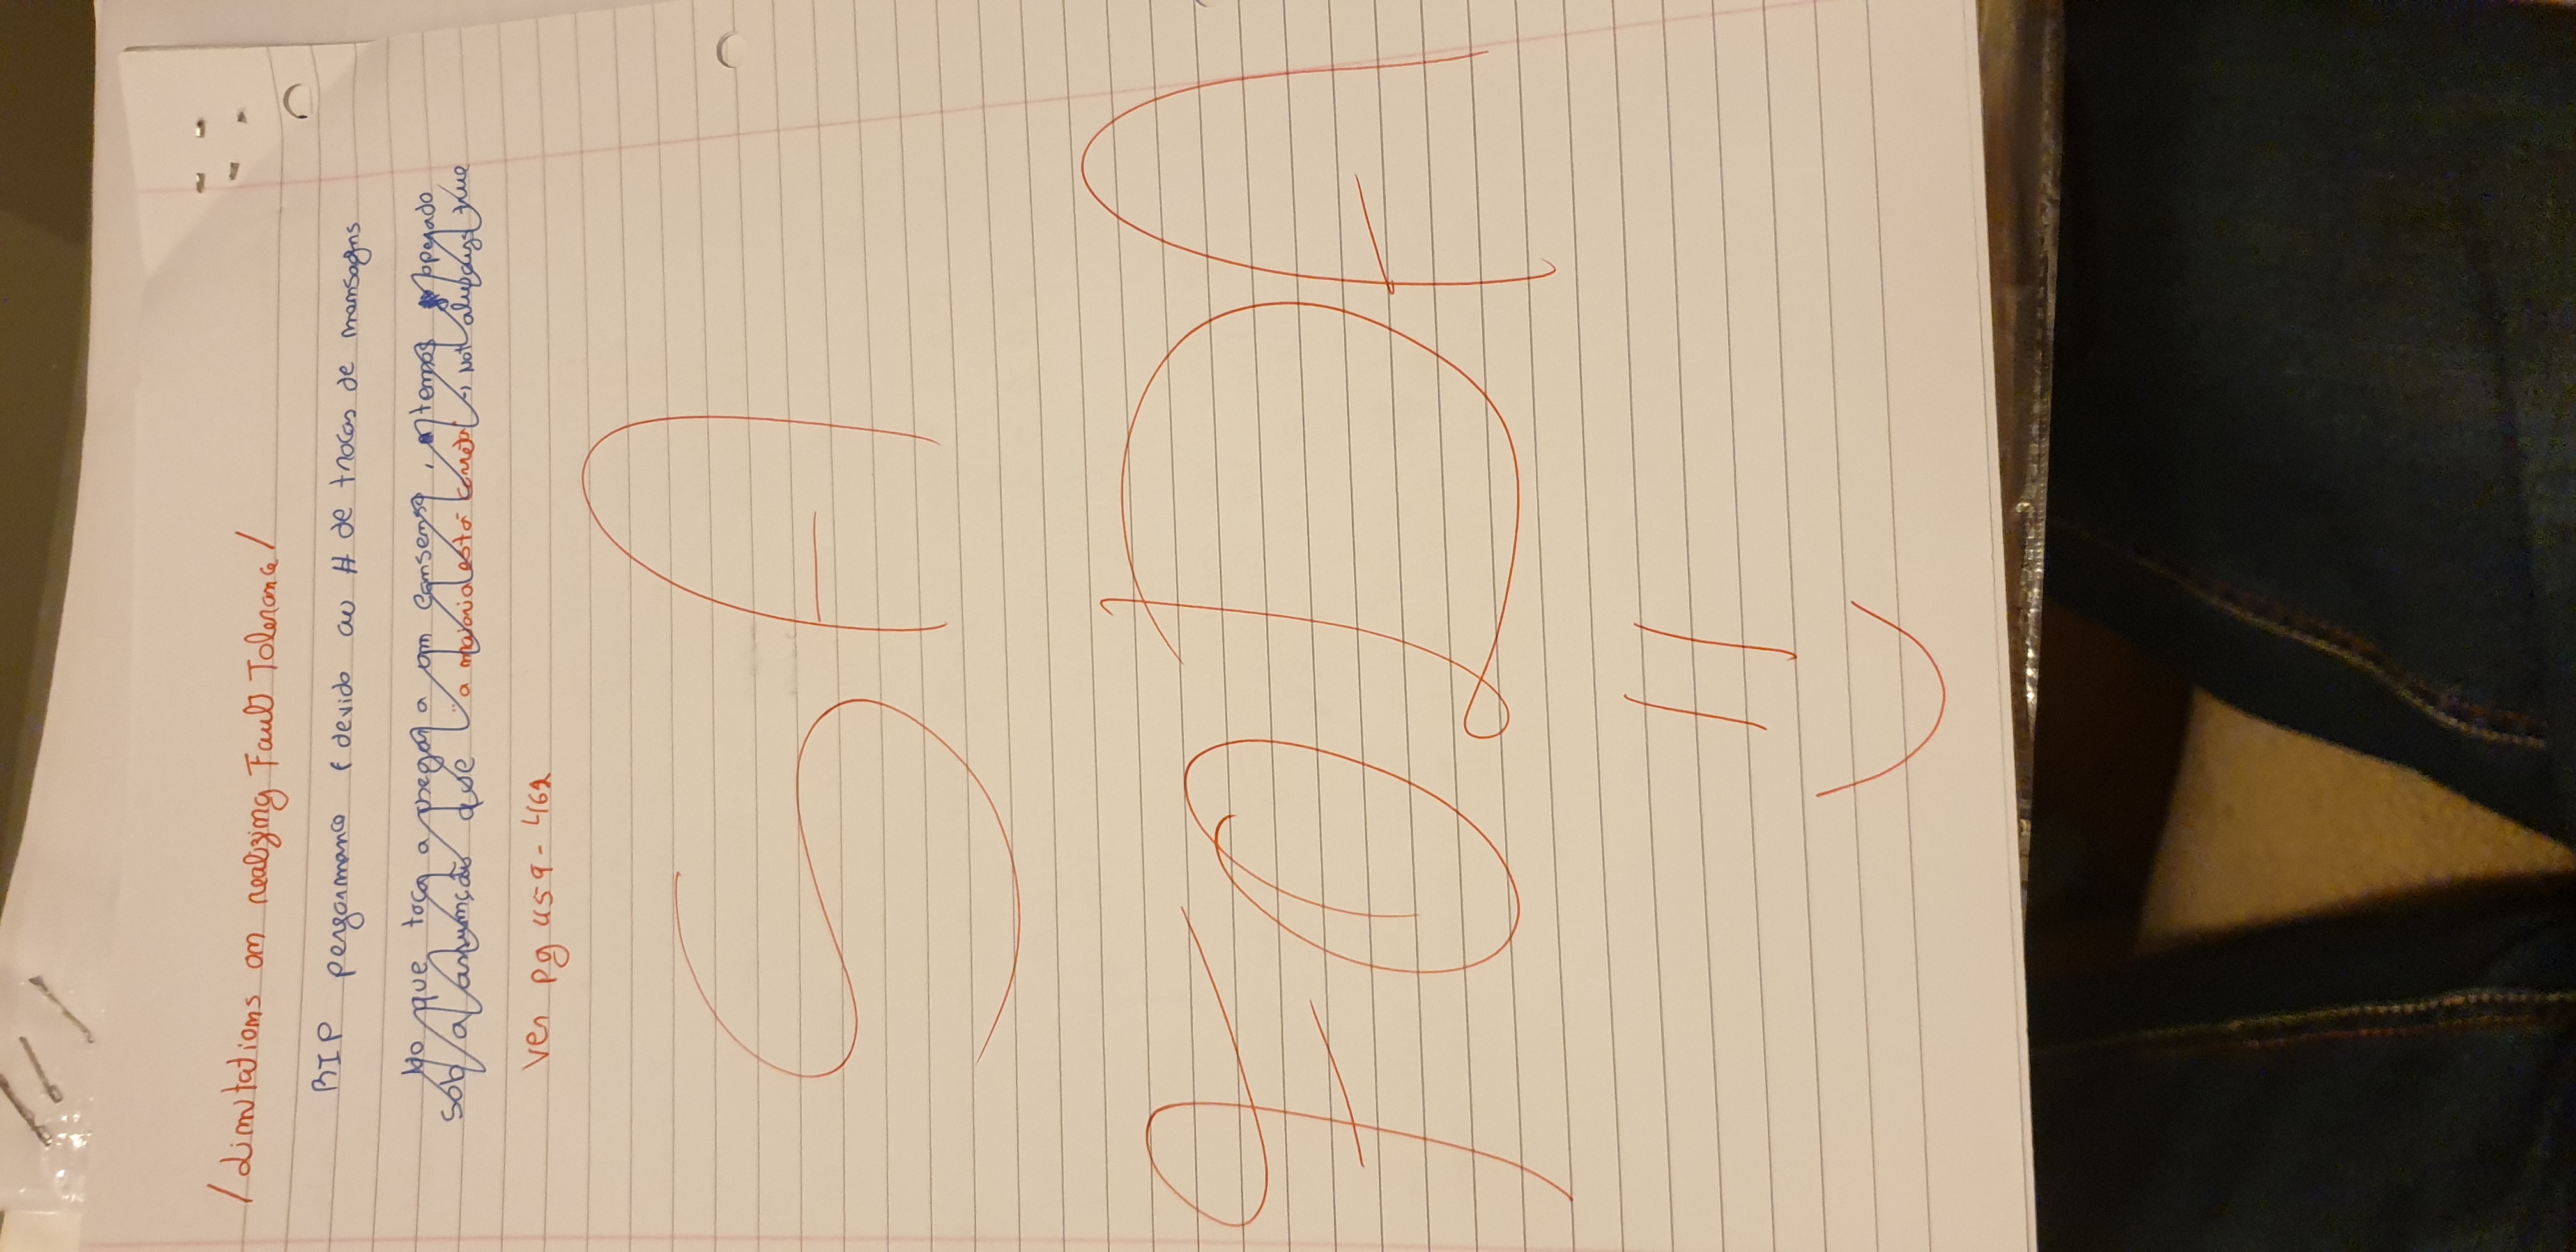 /Limitations on realizing Fault Tolerance/
RIP performance (devido ao # de trocas de mensagens
No que toca a chegar a um consenso, temos operado
sob a assumção que "a maioria está correta" → not always true
Ver pg 459-462
SA
FODA